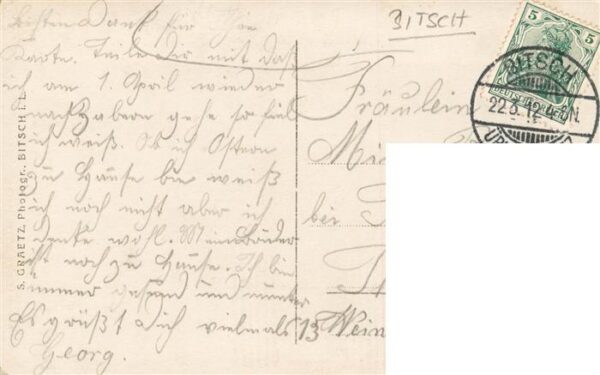 Besten Dank für Ihre
Karte. Teile Dir mit daß
ich am 1. April wieder
nach Zabern gehe so fiel
ich weiß. Ob ich Ostern
zu Hause bin weiß
ich noch nicht aber ich
denke wohl. Mein Bruder
ist noch zu Hause. Ich bin
immer gesund und munter
Es grüßt Dich vielmals
Georg.
S. GRAETZ, Photogr., BITSCH i. L.
BITSCH
5 5
DEUTSCHES REICH
BITSCH
22.3.12.
Fräulein
bei
13 Wein